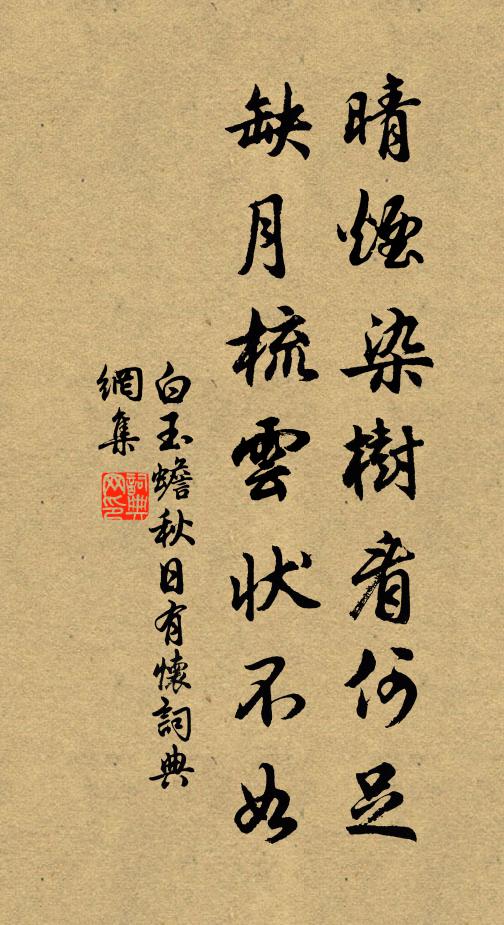 晴煙染樹看何足
缺月梳雲狀不如
白玉蟾秋日有懷詞典
網集
詞典
网印